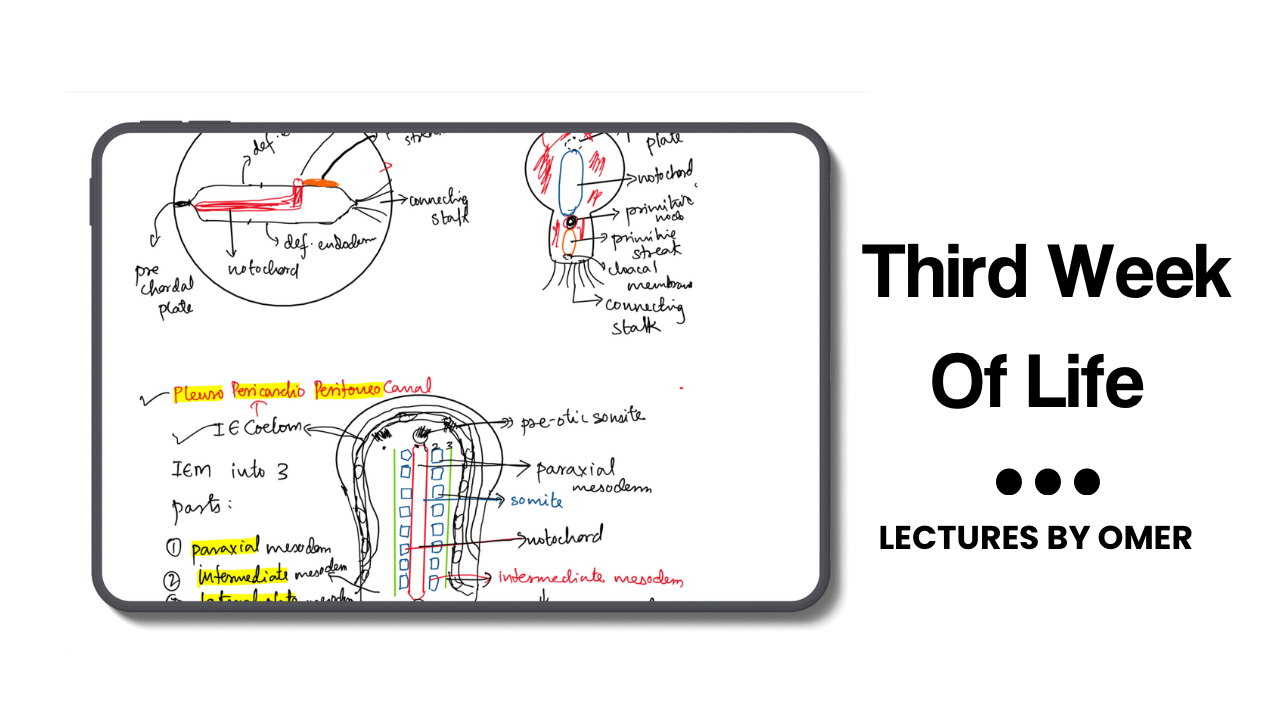 def.
connecting
stalk
def. endoderm
notochord
pre
chordal
plate
plate
notochord
primitive
node
primitive
streak
cloacal
membrane
connecting
stalk
Pleuro Pericardio Peritoneo Canal
IE Coelom
IEM into 3
parts:
① paraxial mesoderm
② intermediate mesoderm
pre-otic somite
2 3
paraxial
mesoderm
somite
notochord
intermediate mesoderm
Third Week
Of Life
LECTURES BY OMER